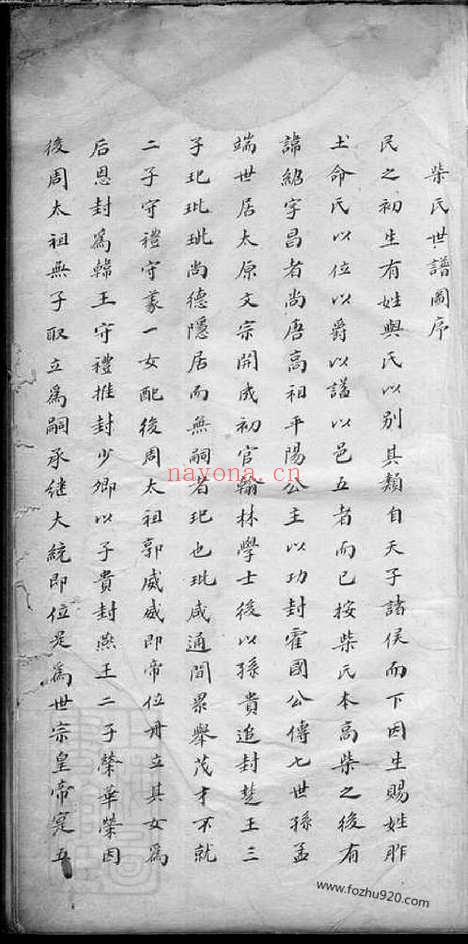 柴氏世譜圖序
民之初生有姓與氏以別其類自天子諸侯而下因生賜姓胙
土命氏以位以爵以謚以邑五者而已按柴氏本高柴之後有
諱紹字昌者尚唐高祖平陽公主以功封霍國公傳七世孫孟
端世居太原文宗開成初官翰林學士後以孫貴追封楚王三
子玘玭玼尚德隱居而無嗣者玘也玭咸通間累舉茂才不就
二子守禮守義一女配後周太祖郭威威即帝位册立其女為
后恩封為韓王守禮推封少卿以子貴封燕王二子榮華榮因
後周太祖無子取立為嗣承繼大統即位是為世宗皇帝寔五
nayona.cn
www.fozhu920.com